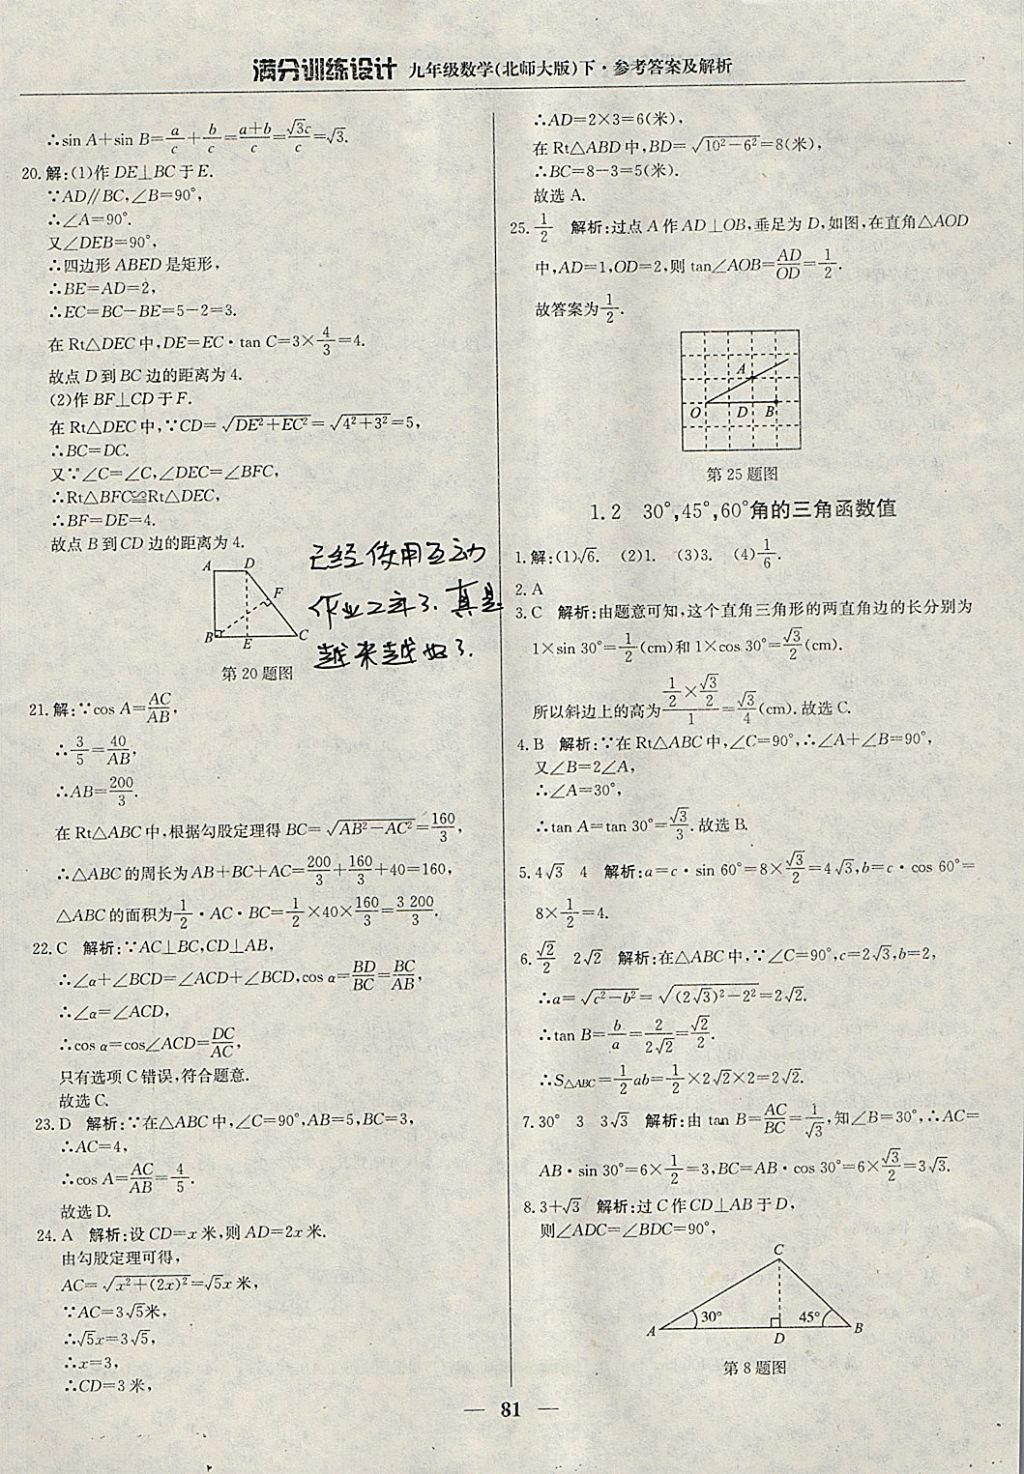 满分训练设计 九年级数学(北师大版)下·参考答案及解析
∴sin A+sin B=a/c+b/c=(a+b)/c=√3c/c=√3.
20.解:(1)作 DE⊥BC 于 E.
∵AD∥BC,∠B=90°,
∴∠A=90°.
又∠DEB=90°,
∴四边形 ABED 是矩形,
∴BE=AD=2,
∴EC=BC-BE=5-2=3.
在 Rt△DEC 中,DE=EC·tan C=3×4/3=4.
故点 D 到 BC 边的距离为 4.
(2)作 BF⊥CD 于 F.
在 Rt△DEC 中,∵CD=√(DE²+EC²)=√(4²+3²)=5,
∴BC=DC.
又∵∠C=∠C,∠DEC=∠BFC,
∴Rt△BFC≌Rt△DEC,
∴BF=DE=4.
故点 B 到 CD 边的距离为 4.
A D F B E C
第 20 题图
已经使用互动
作业2年了.真是
越来越好了.
21.解:∵cos A=AC/AB,
∴3/5=40/AB,
∴AB=200/3.
在 Rt△ABC 中,根据勾股定理得 BC=√(AB²-AC²)=160/3,
∴△ABC 的周长为 AB+BC+AC=200/3+160/3+40=160,
△ABC 的面积为1/2·AC·BC=1/2×40×160/3=3 200/3.
22.C 解析:∵AC⊥BC,CD⊥AB,
∴∠α+∠BCD=∠ACD+∠BCD,cos α=BD/BC=BC/AB,
∴∠α=∠ACD,
∴cos α=cos∠ACD=DC/AC,
只有选项 C 错误,符合题意.
故选 C.
23.D 解析:∵在△ABC 中,∠C=90°,AB=5,BC=3,
∴AC=4,
∴cos A=AC/AB=4/5.
故选 D.
24.A 解析:设 CD=x 米,则 AD=2x 米.
由勾股定理可得,
AC=√(x²+(2x)²)=√5x 米,
∵AC=3√5米,
∴√5x=3√5,
∴x=3,
∴CD=3 米,
∴AD=2×3=6(米),
在 Rt△ABD 中,BD=√(10²-6²)=8(米),
∴BC=8-3=5(米).
故选 A.
25.1/2 解析:过点 A 作 AD⊥OB,垂足为 D,如图,在直角△AOD
中,AD=1,OD=2,则 tan∠AOB=AD/OD=1/2.
故答案为1/2.
A O D B
第 25 题图
1.2 30°,45°,60°角的三角函数值
1.解:(1)√6. (2)1. (3)3. (4)1/6.
2.A
3.C 解析:由题意可知,这个直角三角形的两直角边的长分别为
1×sin 30°=1/2(cm)和 1×cos 30°=√3/2(cm).
所以斜边上的高为(1/2×√3/2)/1=√3/4(cm).故选 C.
4.B 解析:∵在 Rt△ABC 中,∠C=90°,∴∠A+∠B=90°,
又∠B=2∠A,
∴∠A=30°,
∴tan A=tan 30°=√3/3.故选 B.
5.4√3 4 解析:a=c·sin 60°=8×√3/2=4√3,b=c·cos 60°=
8×1/2=4.
6.√2/2 2√2 解析:在△ABC 中,∵∠C=90°,c=2√3,b=2,
∴a=√(c²-b²)=√((2√3)²-2²)=2√2.
∴tan B=b/a=2/2√2=√2/2.
∴S△ABC=1/2ab=1/2×2√2×2=2√2.
7.30° 3 3√3 解析:由 tan B=AC/BC=1/√3,知∠B=30°,∴AC=
AB·sin 30°=6×1/2=3,BC=AB·cos 30°=6×√3/2=3√3.
8.3+√3 解析:过 C 作 CD⊥AB 于 D,
则∠ADC=∠BDC=90°,
C 30° 45° A D B
第 8 题图
— 81 —